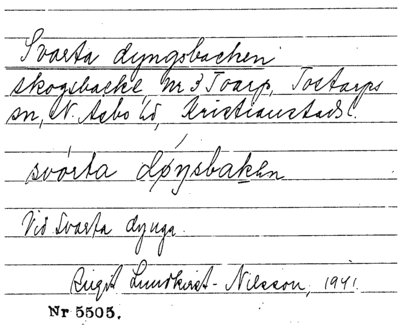 Svarta dyngsbacken
skogsbacke, nr 3 Toarp, Tostarps
sn, N. Åsbo hd, Kristianstads l.
svórta dýŋsbakən
Vid Svarta dynga.
Birgit Lundkvist-Nilsson, 1941
Nr 5505.